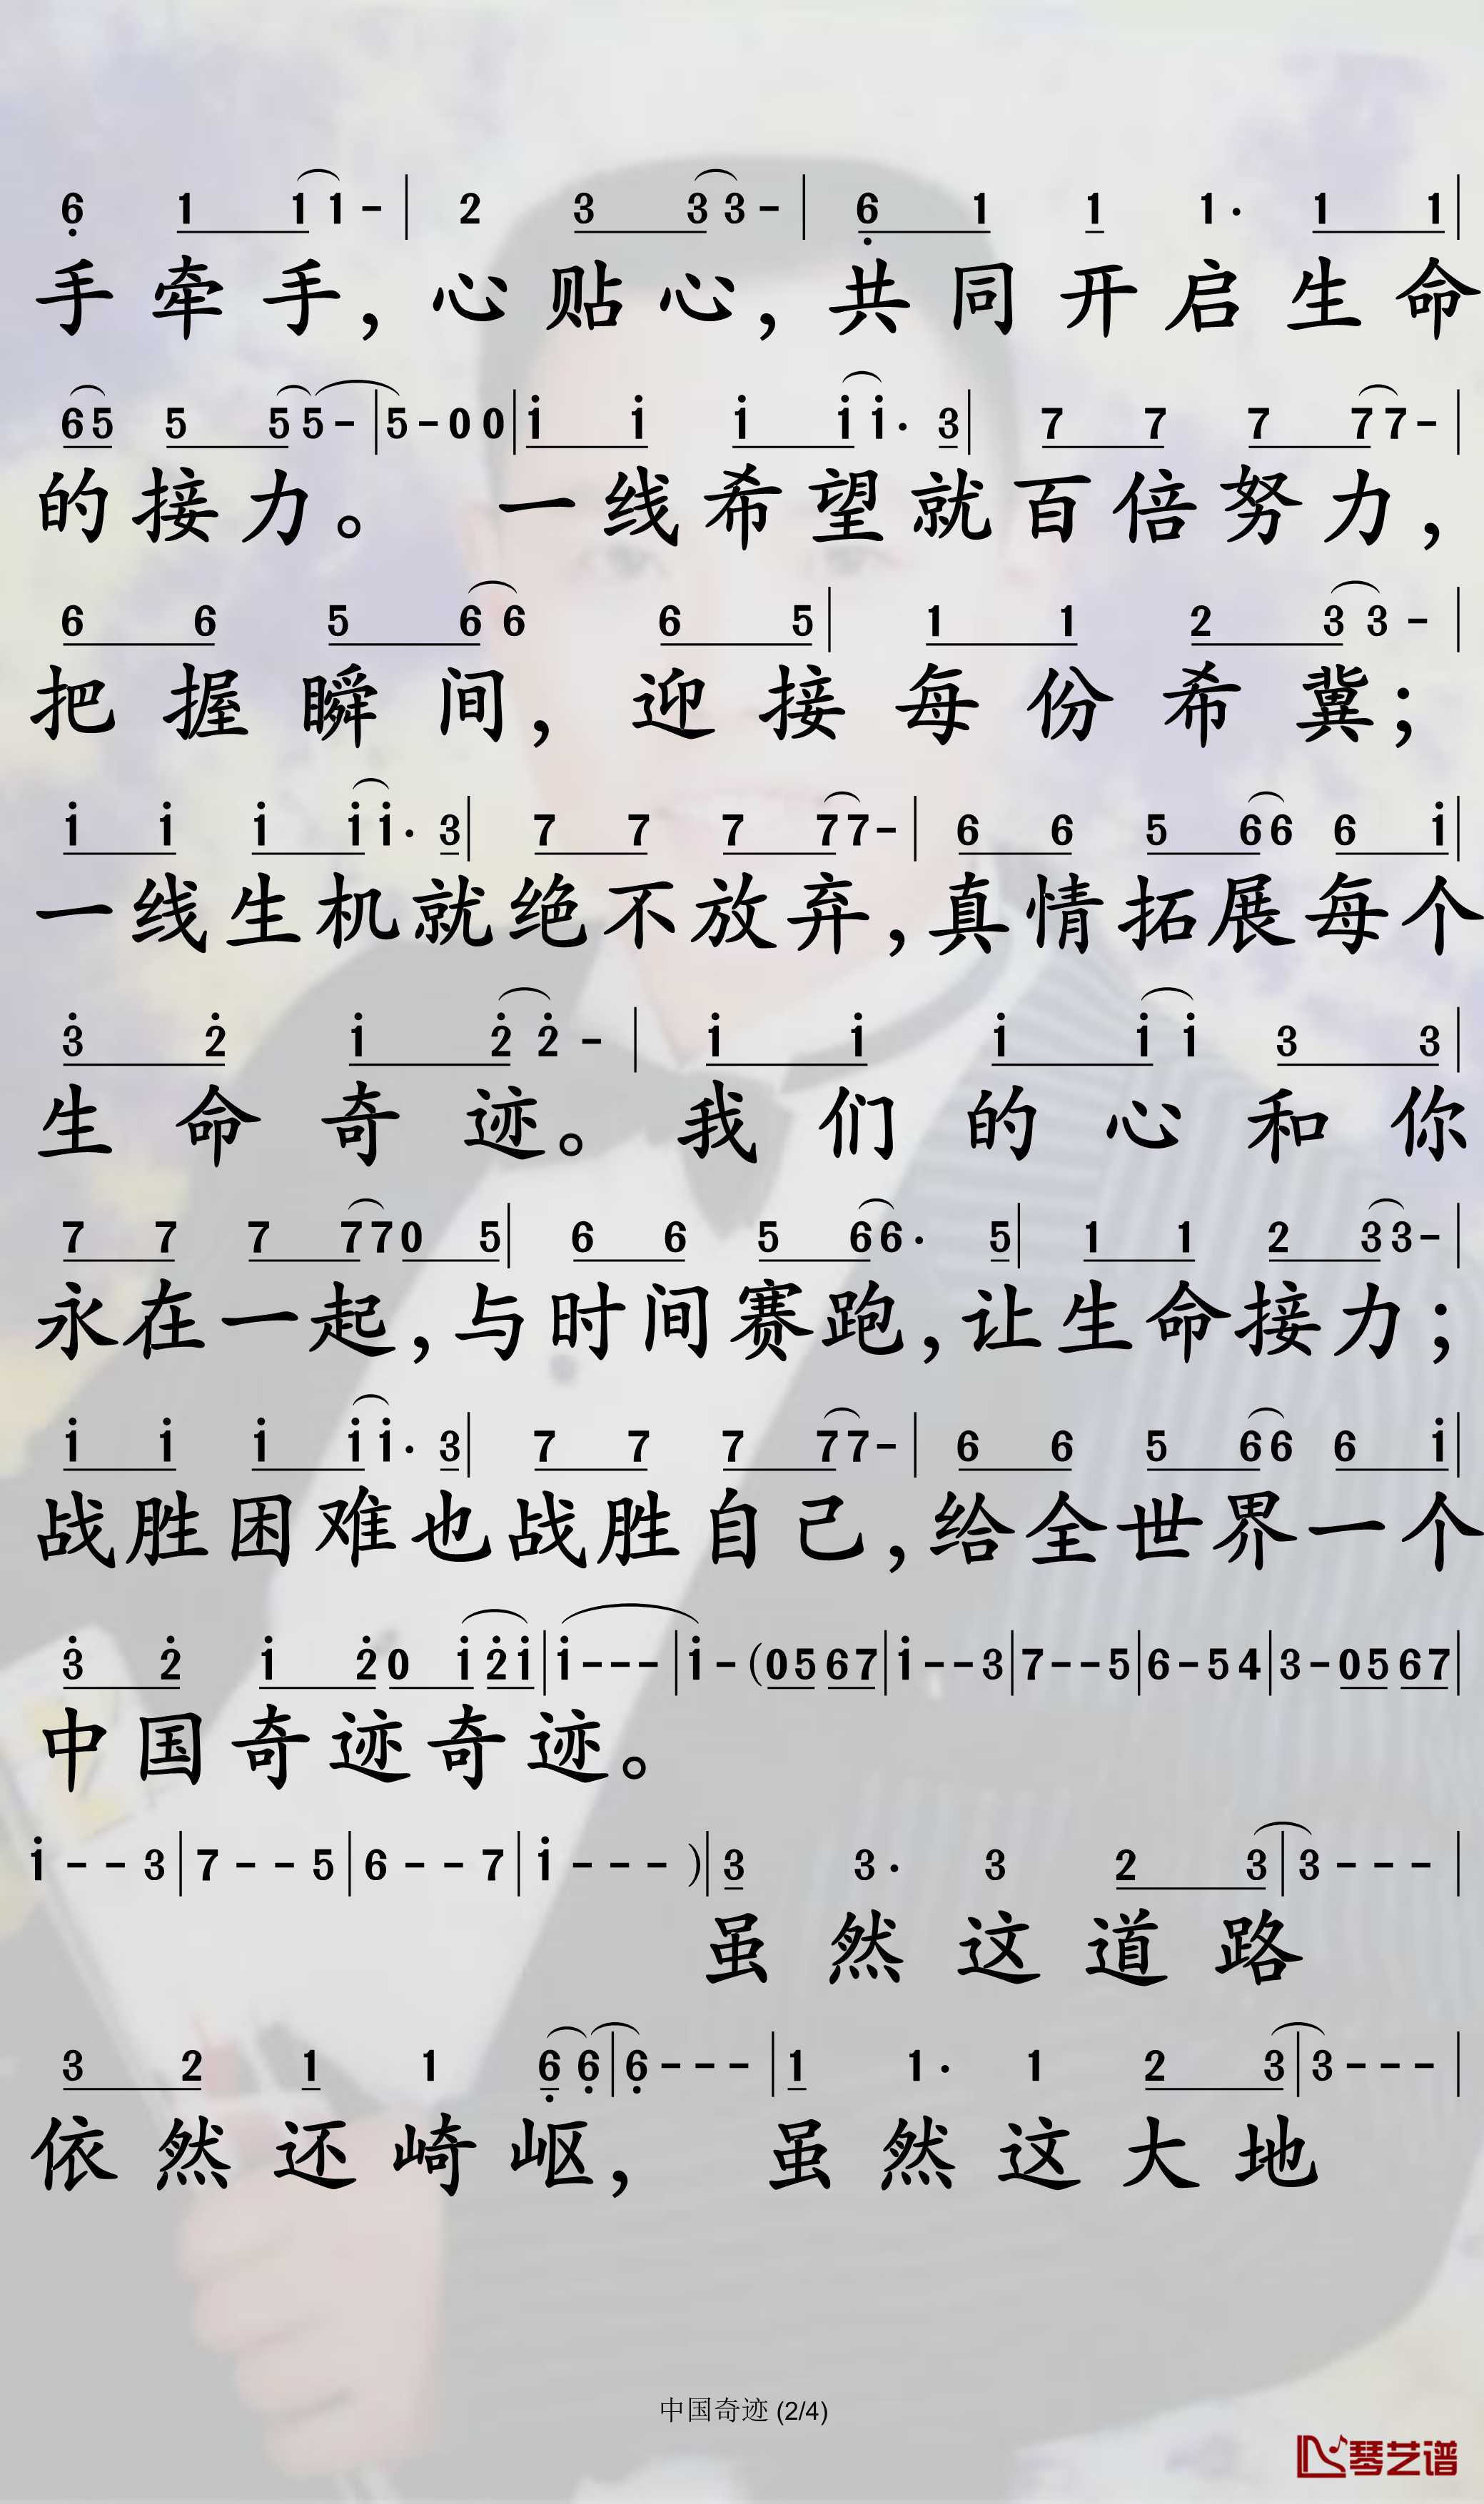 6̣ 1 1 1 - | 2 3 3 3 - | 6̣ 1 1 1· 1 1 |
手牵手，心贴心，共同开启生命
6 5 5 5 5 - | 5 - 0 0 | i i i i i· 3 | 7 7 7 7 7 - |
的接力。 一线希望就百倍努力，
6 6 5 6 6 6 5 | 1 1 2 3 3 - |
把握瞬间，迎接每份希冀；
i i i i i· 3 | 7 7 7 7 7 - | 6 6 5 6 6 6 i |
一线生机就绝不放弃，真情拓展每个
3̇ 2̇ i 2̇ 2̇ - | i i i i i 3 3 |
生命奇迹。我们的心和你
7 7 7 7 7 0 5 | 6 6 5 6 6· 5 | 1 1 2 3 3 - |
永在一起，与时间赛跑，让生命接力；
i i i i i· 3 | 7 7 7 7 7 - | 6 6 5 6 6 6 i |
战胜困难也战胜自己，给全世界一个
3̇ 2̇ i 2̇ 0 i 2̇ i | i - - - | i - ( 0 5 6 7 | i - - 3 | 7 - - 5 | 6 - 5 4 | 3 - 0 5 6 7 |
中国奇迹奇迹。
i - - 3 | 7 - - 5 | 6 - - 7 | i - - - ) | 3 3· 3 2 3 | 3 - - - |
虽然这道路
3 2 1 1 6̣ 6̣ | 6̣ - - - | 1 1· 1 2 3 | 3 - - - |
依然还崎岖， 虽然这大地
中国奇迹 (2/4)
琴艺谱